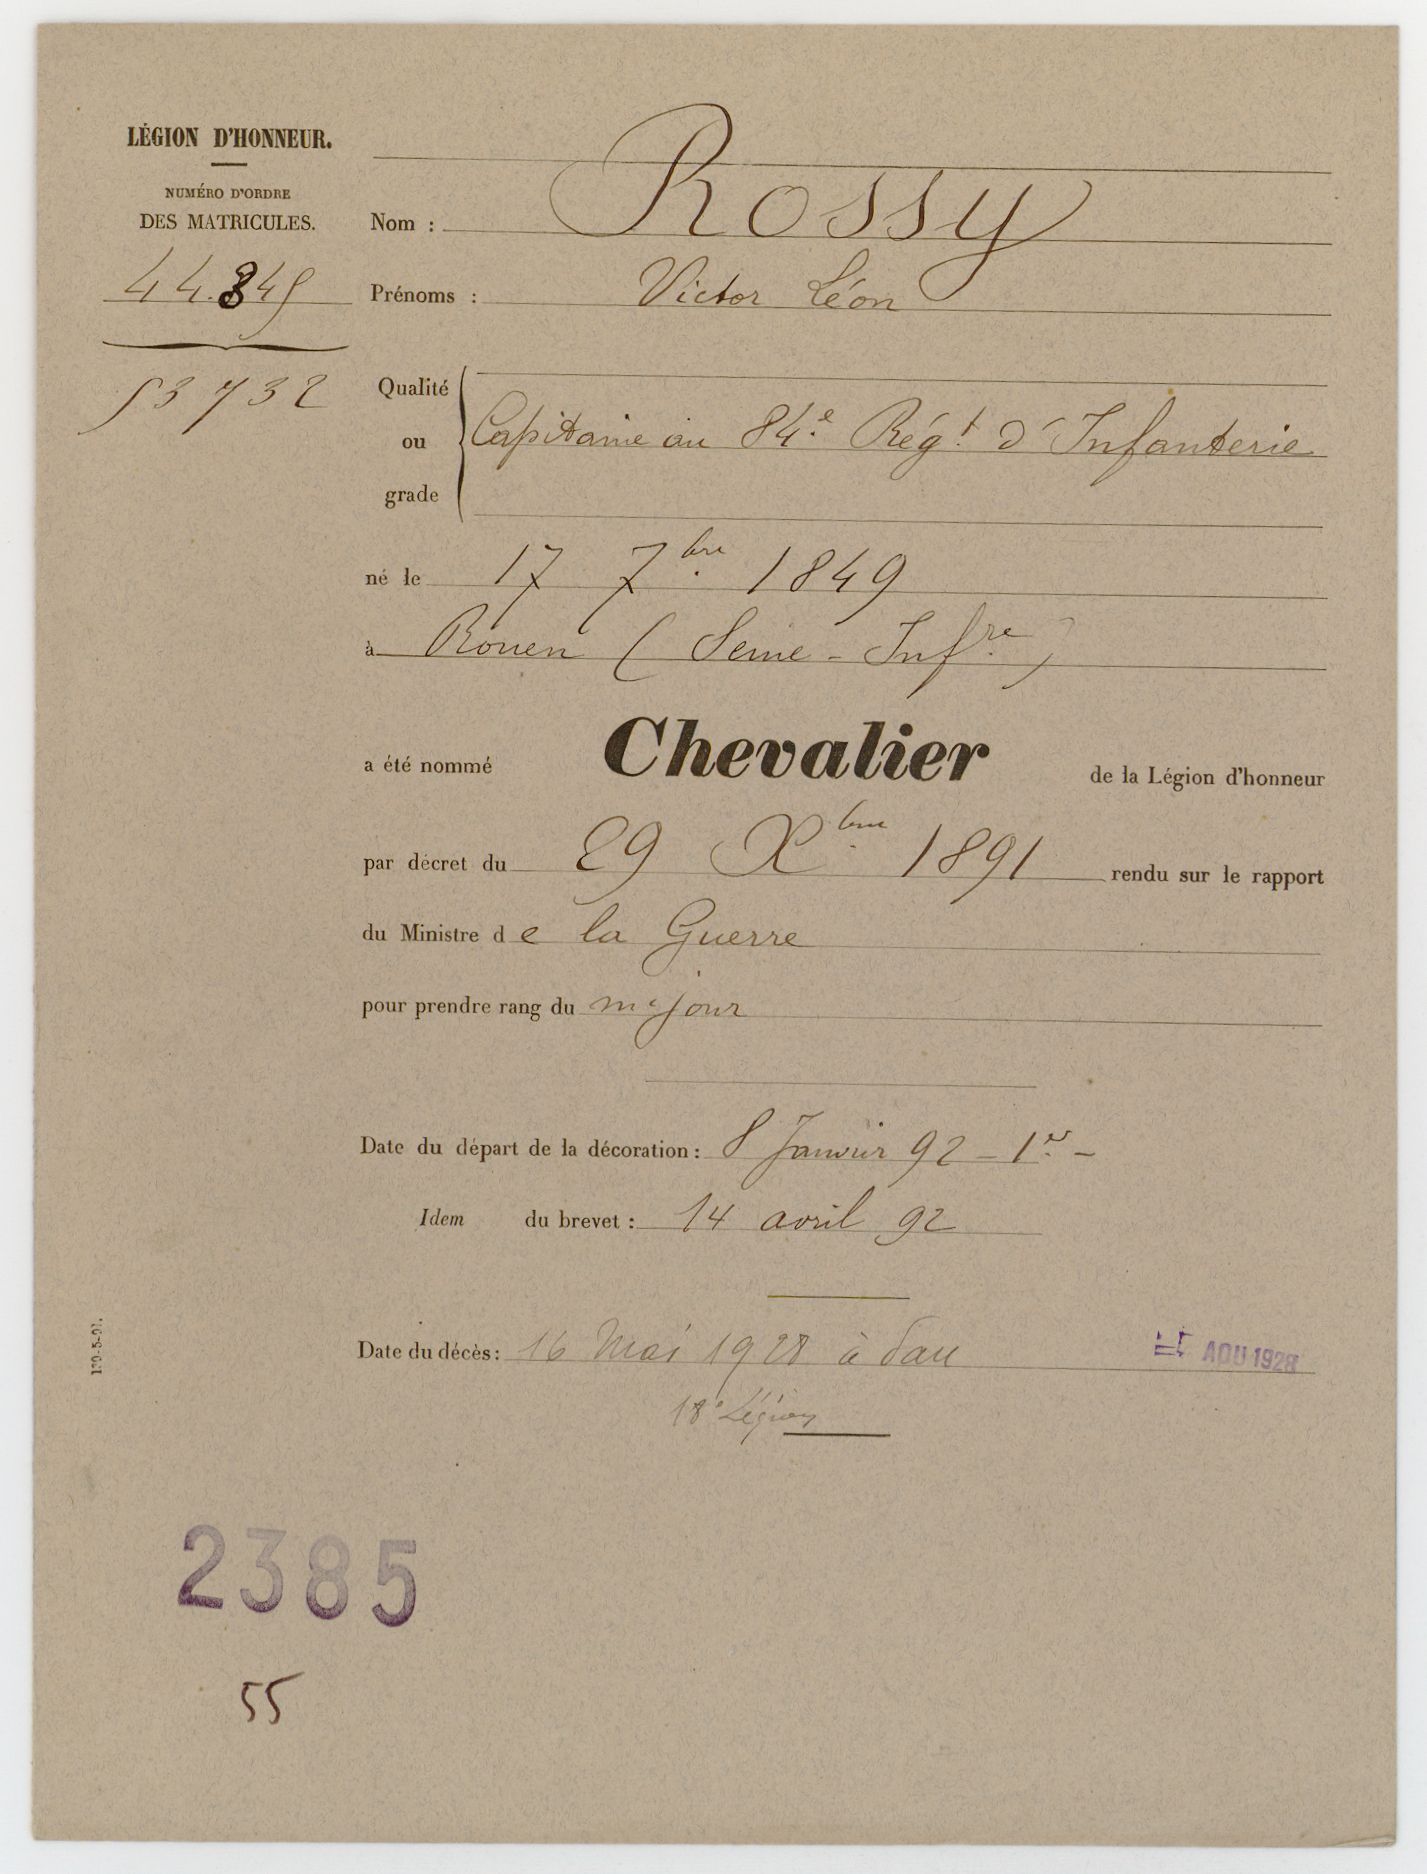 LÉGION D'HONNEUR.
NUMÉRO D'ORDRE
DES MATRICULES.
44.845
53732
Nom : Rossy
Prénoms : Victor Léon
Qualité
ou
grade
Capitaine au 84.e Rég.t d'Infanterie
né le 17 7bre 1849
à Rouen (Seine-Inf.re)
a été nommé Chevalier de la Légion d'honneur
par décret du 29 Xbre 1891 rendu sur le rapport
du Ministre de la Guerre
pour prendre rang du me jour
Date du départ de la décoration : 8 Janvier 92 - 1er -
Idem du brevet : 14 avril 92
Date du décès : 16 Mai 1928 à Pau
AOU 1928
18e Légion
2385
55